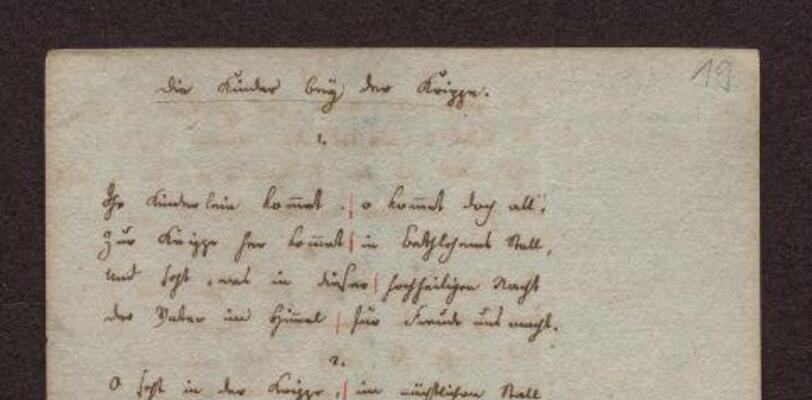 19
Die Kinder bey der Krippe.
1.
Ihr Kinderlein kom̅et, | o kom̅et doch all'!
Zur Krippe her kom̅et | in Bethlehems Stall,
Und seht, was in dieser | hochheiligen Nacht
der Vater im Him̅el | für Freude uns macht.
2.
O seht in der Krippe, | im nächtlichen Stall